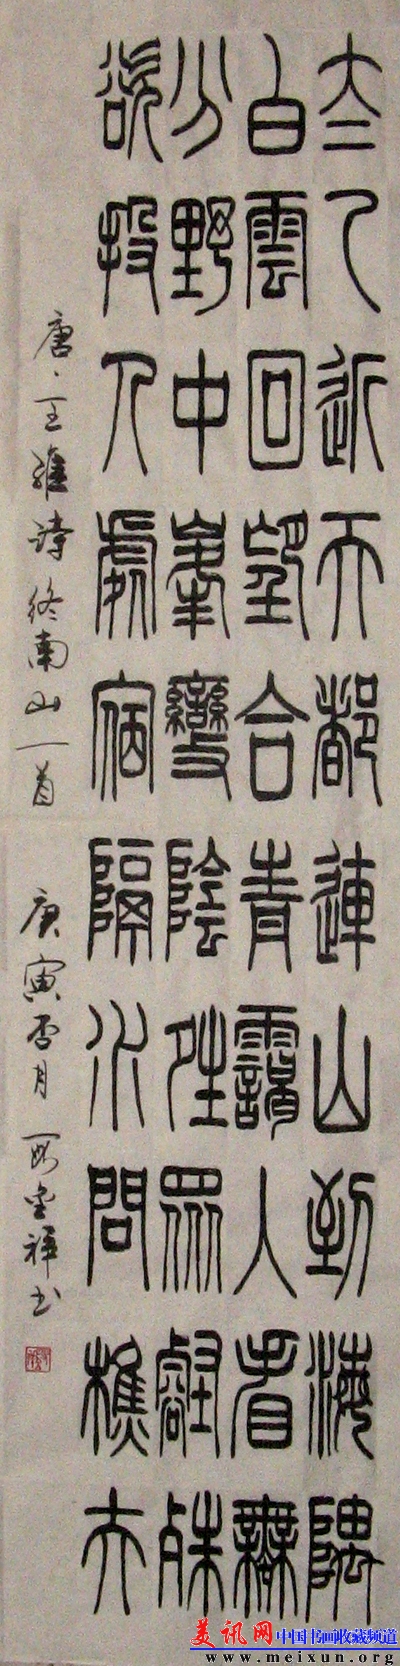 太乙近天都連山到海隅
白雲回望合青靄人看無
分野中峯變陰夝眾壑殊
欲投人處宿隔水問樵夫
唐、王維詩終南山一首
庚寅杏月 祥书
美讯网 中国书画收藏频道
www.meixun.org